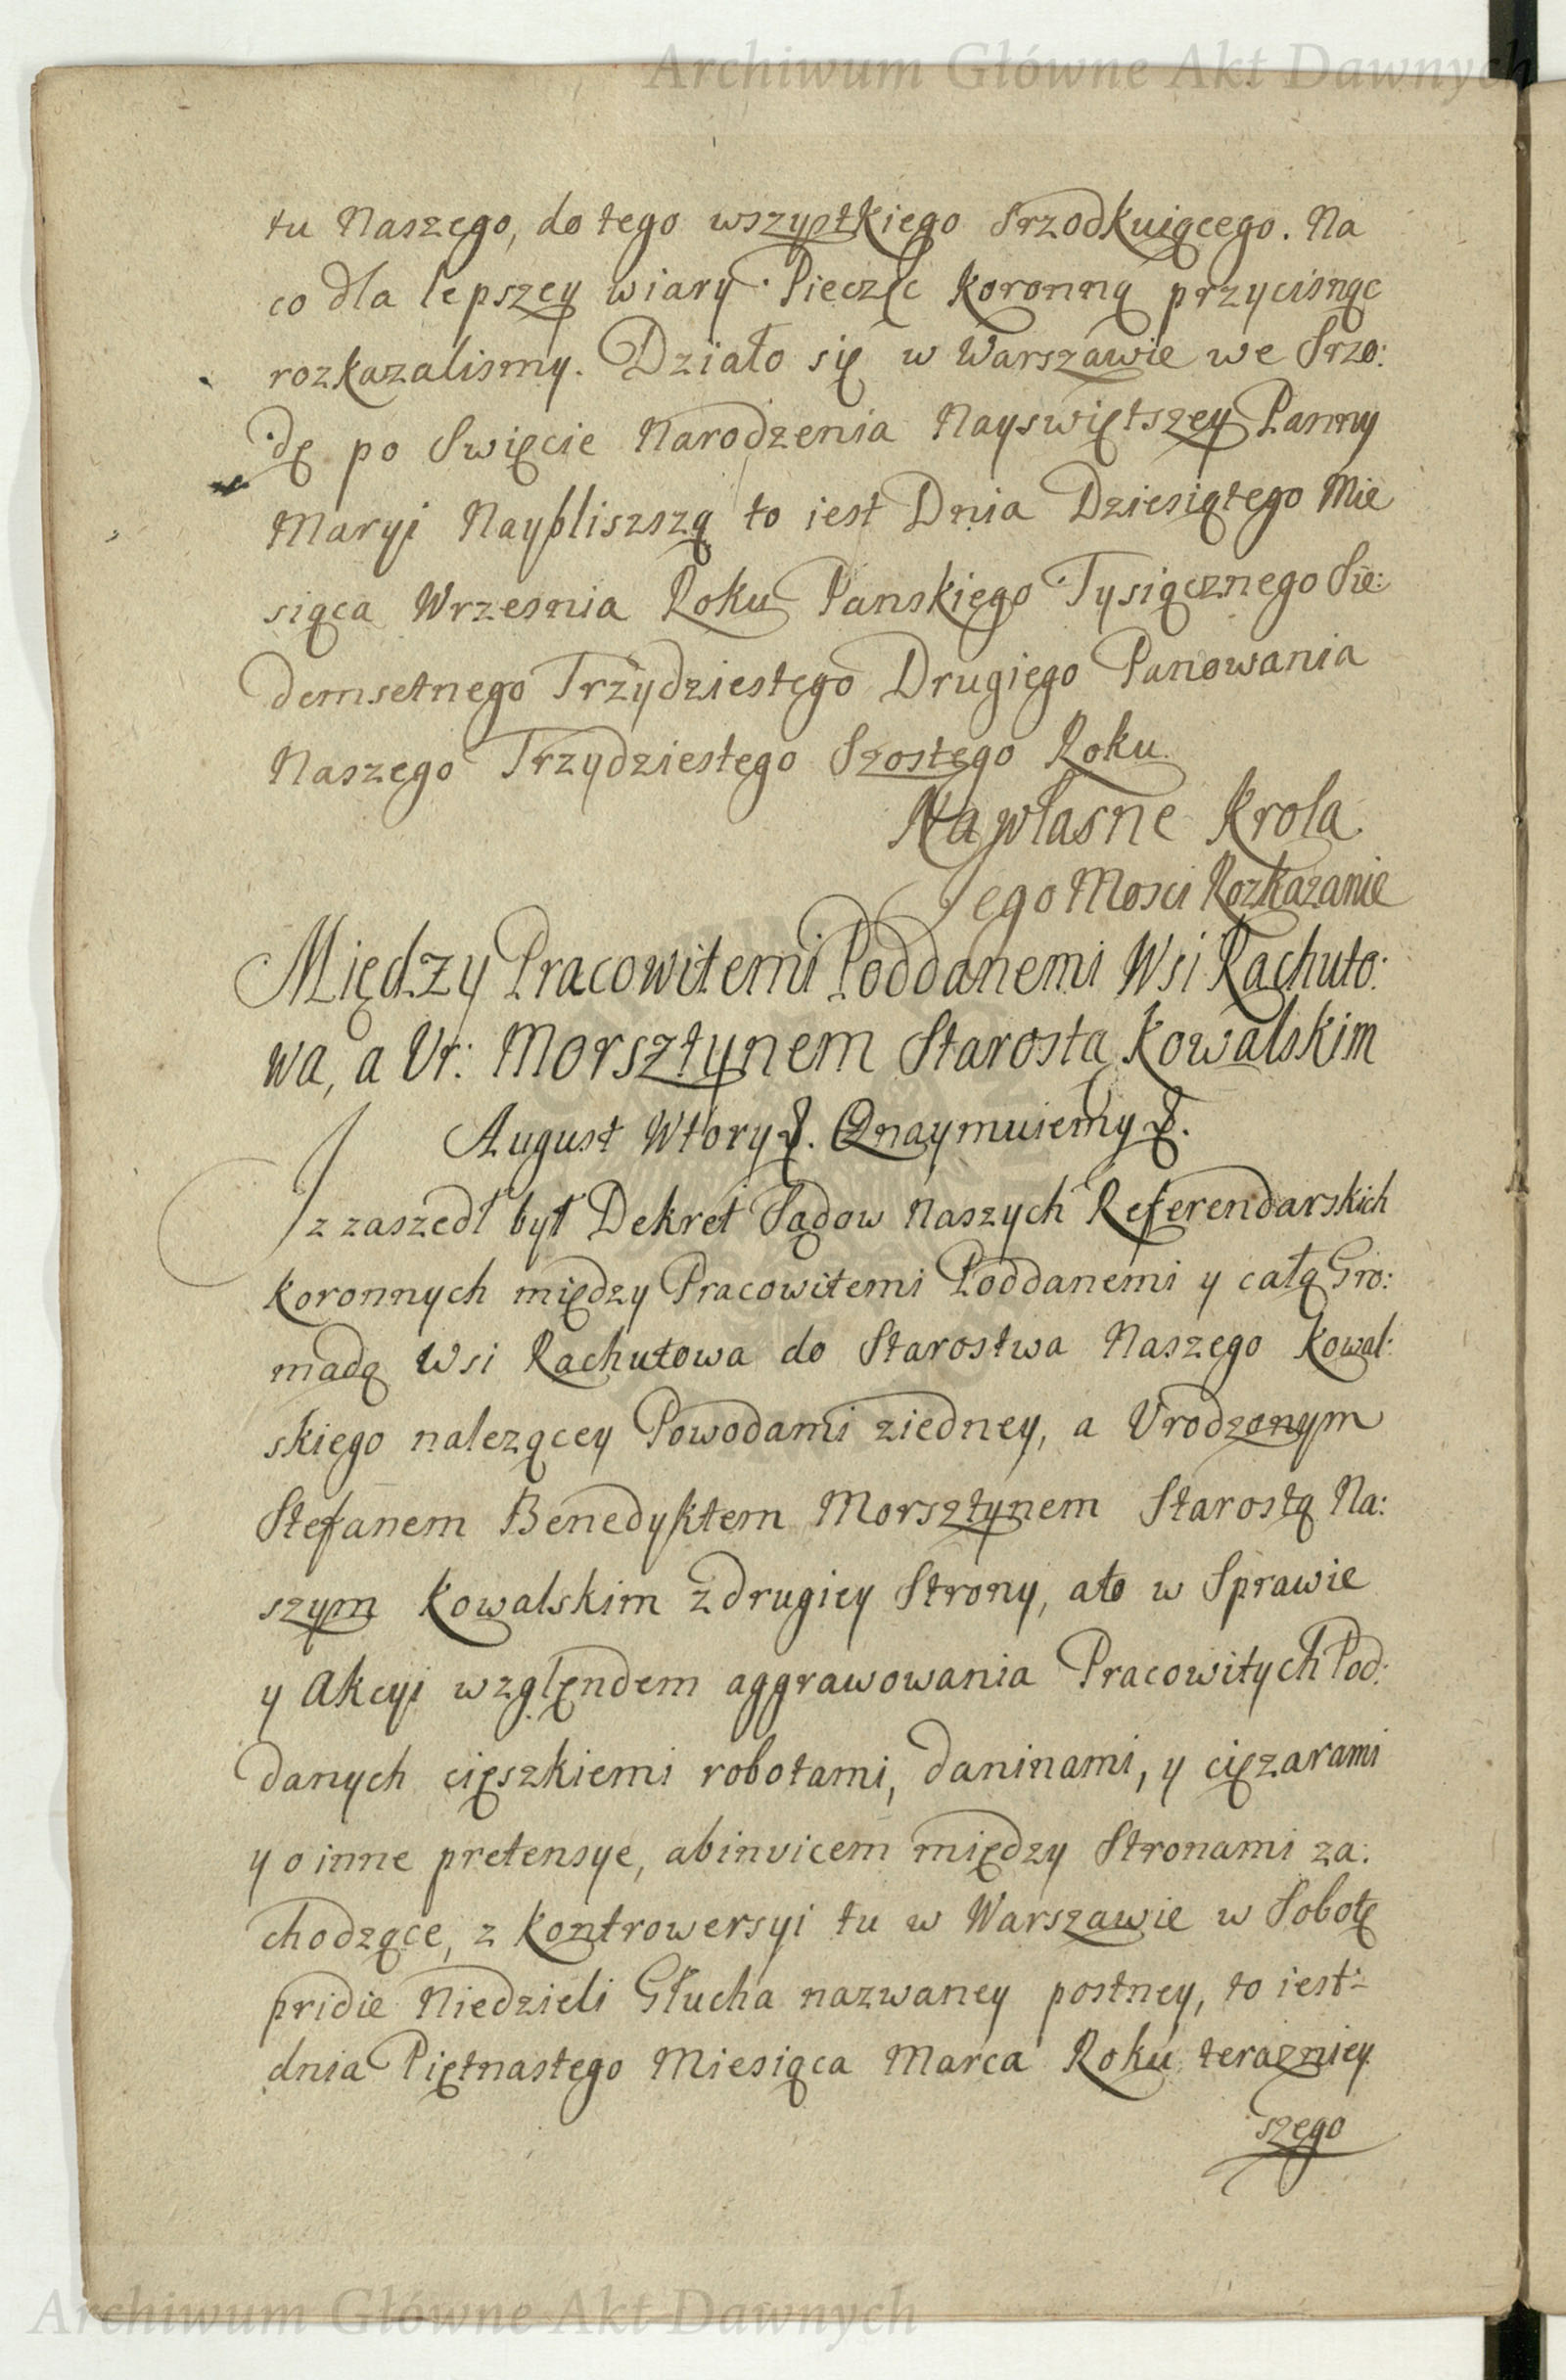 Archiwum Główne Akt Dawnych
tu Naszego, do tego wszystkiego Srzodkuiącego. Na
co dla lepszey wiary Pieczęc Koronną przycisnąc
rozkazalismy. Działo się w Warszawie we Srzo:
dę po Swięcie Narodzenia Nayswiętszey Panny
Maryi Naybliszszą to iest Dnia Dziesiątego Mie
siąca Wrzesnia Roku Panskiego Tysiącznego Sie:
demsetnego Trzydziestego Drugiego Panowania
Naszego Trzydziestego Szostego Roku
Na własne Krola
Jego Mosci Rozkazanie
Między Pracowitemi Poddanemi Wsi Rachuto:
wa, a Ur: Morsztynem Starostą Kowalskim
August Wtory &. Oznaymuiemy &.
Iz zaszedł był Dekret Sądow Naszych Referendarskich
Koronnych między Pracowitemi Poddanemi y całą Gro:
madą Wsi Rachutowa do Starostwa Naszego Kowal:
skiego nalezącey Powodami ziedney, a Urodzonym
Stefanem Benedyktem Morsztynem Starostą Na:
szym Kowalskim z drugiey Strony, a to w Sprawie
y Akcyi względem aggrawowania Pracowitych Pod:
danych cięszkiemi robotami, daninami, y cięzarami
y o inne pretensye, abinvicem między Stronami za:
chodzące, z Kontrowersyi tu w Warszawie w Sobotę
pridie Niedzieli Głucha nazwaney postney, to iest
dnia Piętnastego Miesiąca Marca Roku terazniey
szego
Archiwum Główne Akt Dawnych